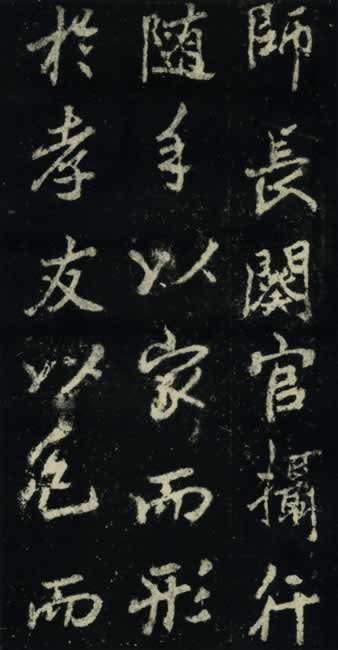 師長闕官攝行
随手以家而形
於孝友以而